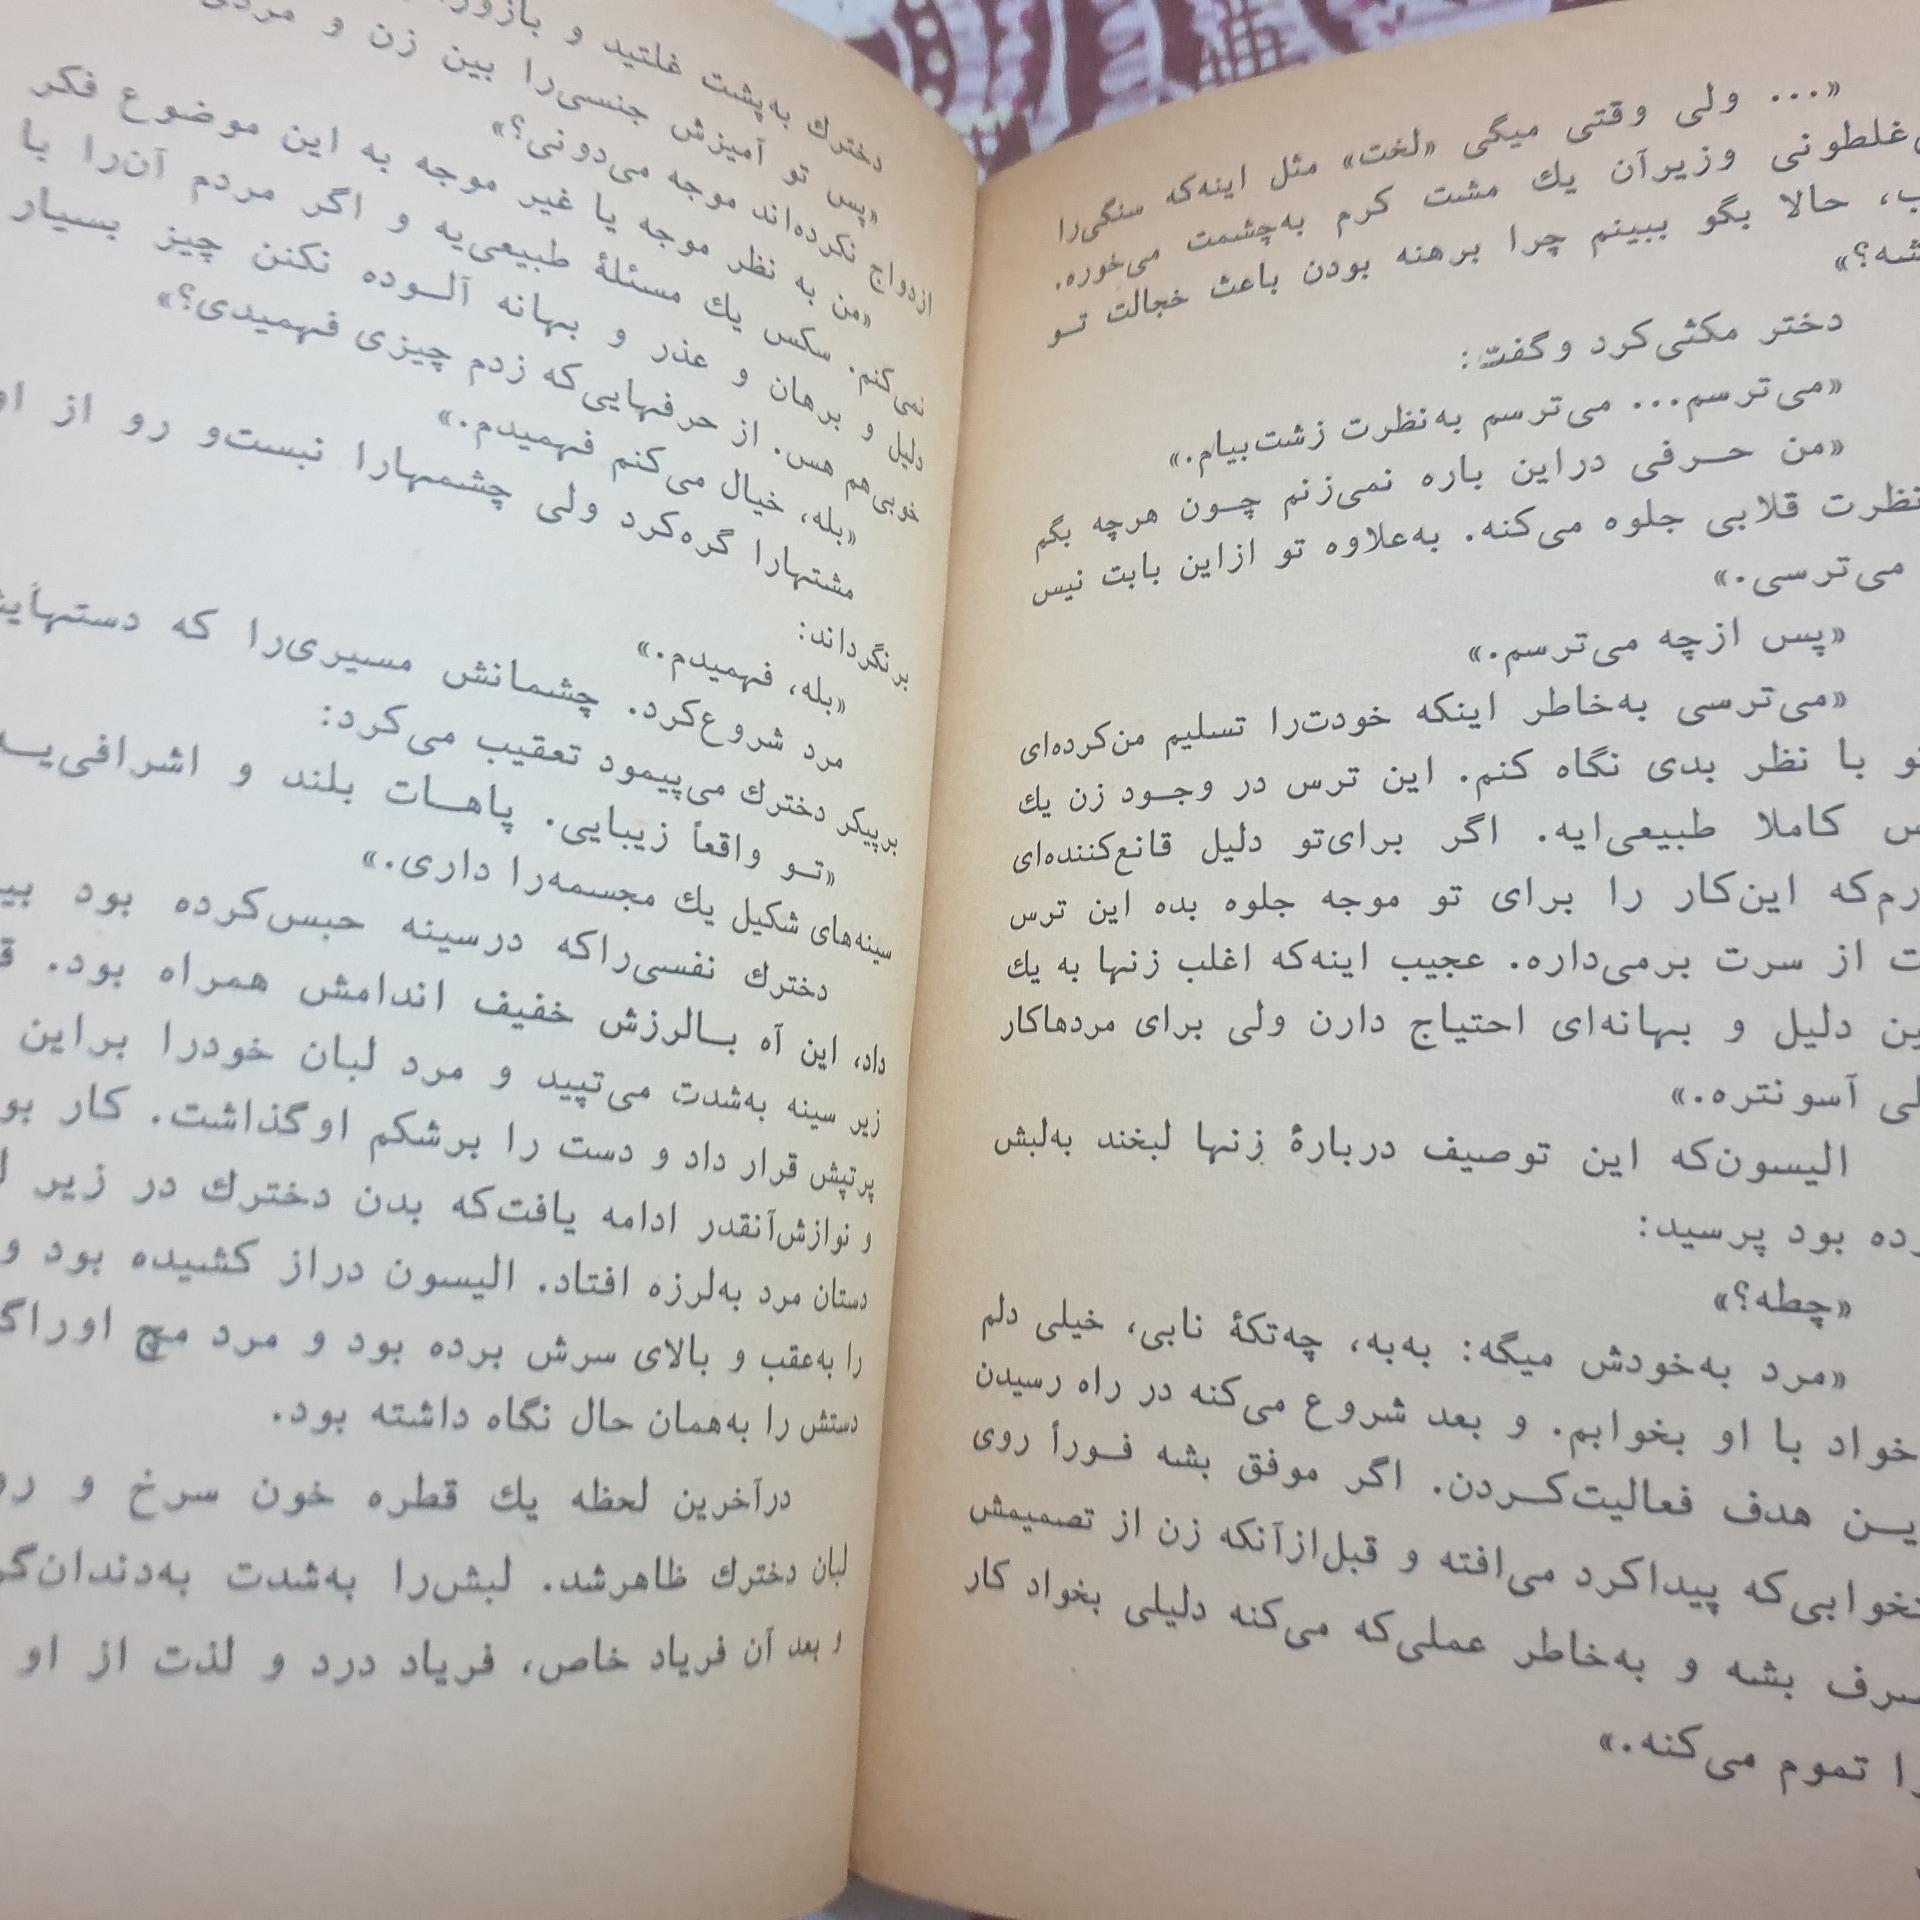 «... ولی وقتی میگی «لخت» مثل اینه‌که سنگی‌را
غلطونی وزیرآن یك مشت کرم به‌چشمت می‌خوره.
حالا بگو ببینم چرا برهنه بودن باعث خجالت تو
شه؟»
دختر مکثی‌کرد وگفت:
«می‌ترسم... می‌ترسم به‌نظرت زشت‌بیام.»
«من حرفی دراین باره نمی‌زنم چون هرچه بگم
نظرت قلابی جلوه می‌کنه. به‌علاوه تو ازاین بابت نیس
می‌ترسی.»
«پس ازچه می‌ترسم.»
«می‌ترسی به‌خاطر اینکه خودت‌را تسلیم من‌کرده‌ای
با نظر بدی نگاه کنم. این ترس در وجود زن یك
کاملا طبیعی‌ایه. اگر برای‌تو دلیل قانع‌کننده‌ای
این‌کار را برای تو موجه جلوه بده این ترس
از سرت برمی‌داره. عجیب اینه‌که اغلب زنها به یك
دلیل و بهانه‌ای احتیاج دارن ولی برای مردهاکار
آسونتره.»
الیسون‌که این توصیف دربارهٔ زنها لبخند به‌لبش
بود پرسید:
«چطه؟»
«مرد به‌خودش میگه: به‌به، چه‌تکهٔ نابی، خیلی دلم
خواد با او بخوابم. و بعد شروع می‌کنه در راه رسیدن
هدف فعالیت‌کردن. اگر موفق بشه فوراً روی
پیداکرد می‌افته و قبل‌ازآنکه زن از تصمیمش
بشه و به‌خاطر عملی‌که می‌کنه دلیلی بخواد کار
تموم می‌کنه.»
دخترك به‌پشت غلتید و
«پس تو آمیزش جنسی‌را بین زن و
ازدواج نکرده‌اند موجه می‌دونی؟»
«من به نظر موجه یا غیر موجه به این موضوع فکر
نمی‌کنم. سکس یك مسئلهٔ طبیعی‌یه و اگر مردم آن‌را با
دلیل و برهان و عذر و بهانه آلوده نکنن چیز بسیار
خوبی‌هم هس. از حرفهایی‌که زدم چیزی فهمیدی؟»
«بله، خیال می‌کنم فهمیدم.»
مشتهارا گره‌کرد ولی چشمهارا نبست‌و رو از
برنگرداند:
«بله، فهمیدم.»
مرد شروع‌کرد. چشمانش مسیری‌را که
برپیکر دخترك می‌پیمود تعقیب می‌کرد:
«تو واقعاً زیبایی. پاهات بلند و
سینه‌های شکیل یك مجسمه‌را داری.»
دخترك نفسی‌راکه درسینه حبس‌کرده بود
داد، این آه بالرزش خفیف اندامش همراه بود.
زیر سینه به‌شدت می‌تپید و مرد لبان خودرا براین
پرتپش قرار داد و دست را برشکم اوگذاشت. کار
و نوازش‌آنقدر ادامه یافت‌که بدن دخترك در زیر
دستان مرد به‌لرزه افتاد. الیسون دراز کشیده بود و
را به‌عقب و بالای سرش برده بود و مرد مچ
دستش را به‌همان حال نگاه داشته بود.
درآخرین لحظه یك قطره خون سرخ و
لبان دخترك ظاهرشد. لبش‌را به‌شدت
و بعد آن فریاد خاص، فریاد درد و لذت از او